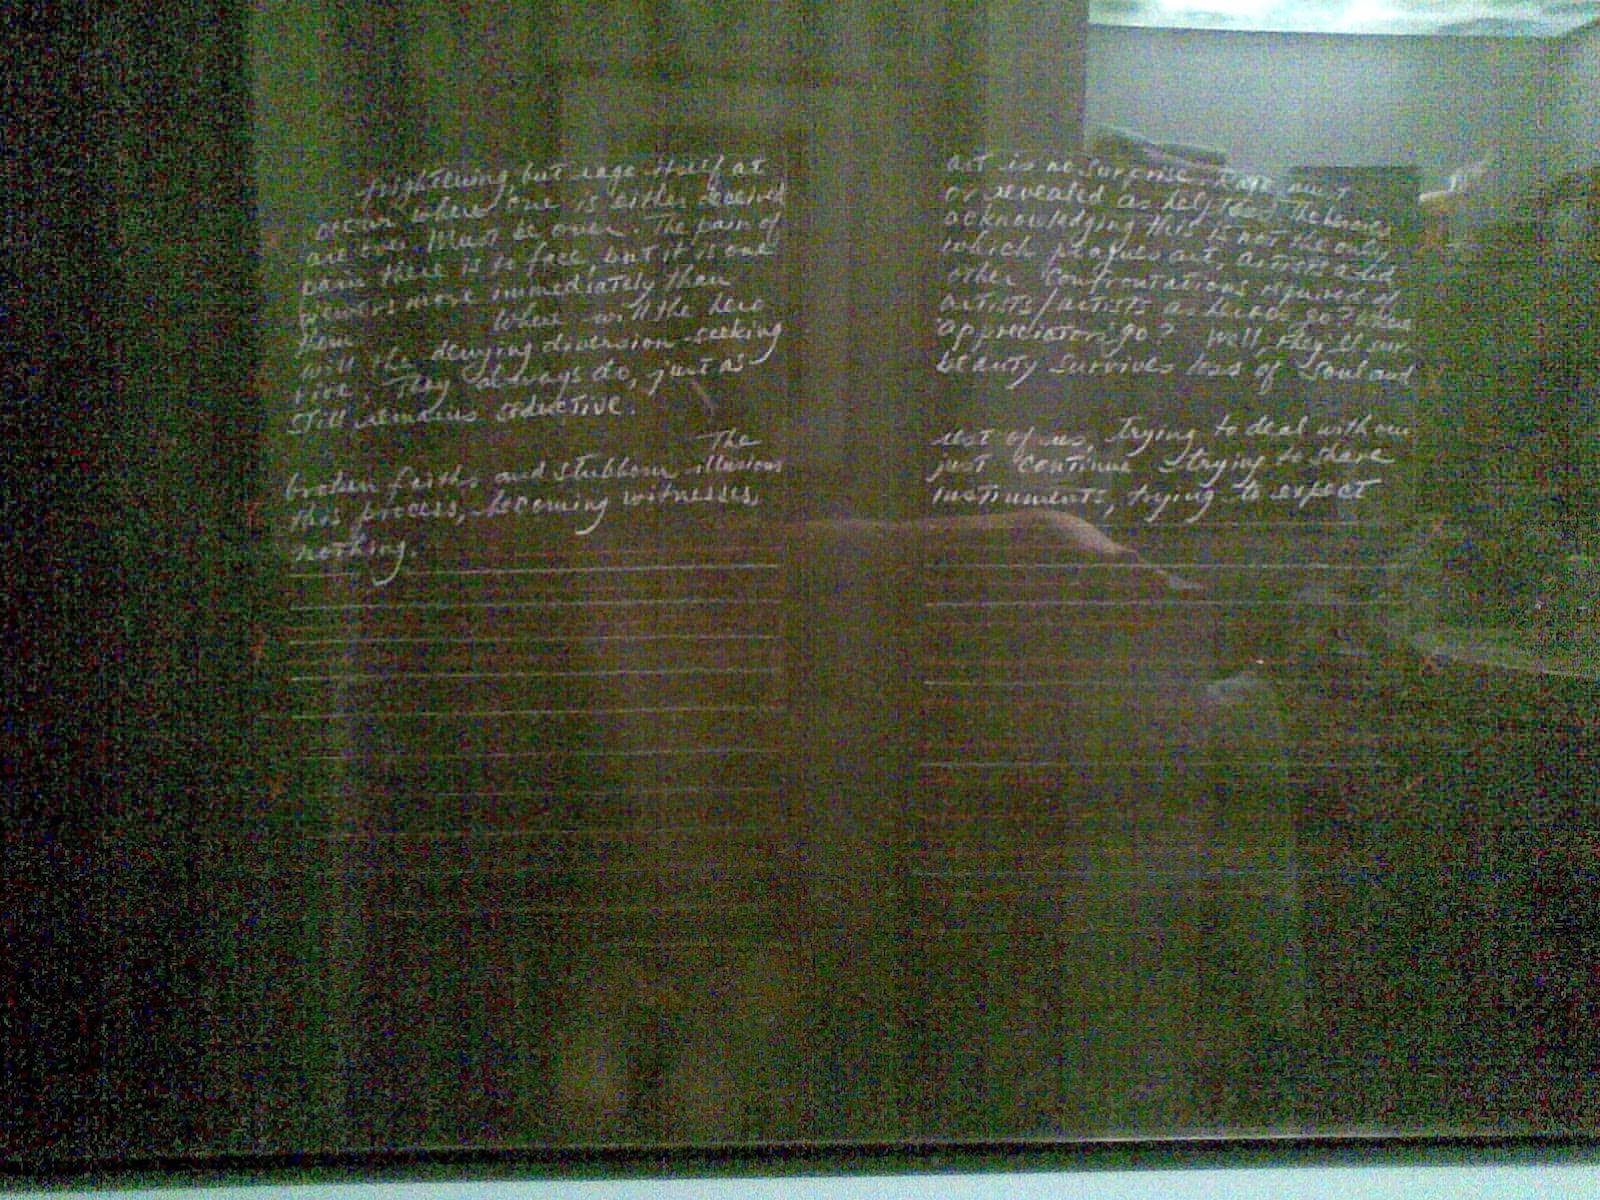 frightening, but rage itself at
occur where one is either deceived
are over. Must be over. The pain of
pain there is to face but it is one
viewers more immediately than
them. Where will the hero
will the denying diversion-seeking
vive. They always do, just as
still remains seductive.
The
broken faiths and stubborn illusions
this process, becoming witnesses,
nothing.
art is no surprise. Rage must
or revealed as helpless. The heroics
acknowledging this is not the only
which plagues art, artists and
other confrontations required of
artists/artists as heroes go? Where
appreciators go? Well, they'll sur-
beauty survives loss of soul and
rest of us, trying to deal with our
just continue trying to share
instruments, trying to expect